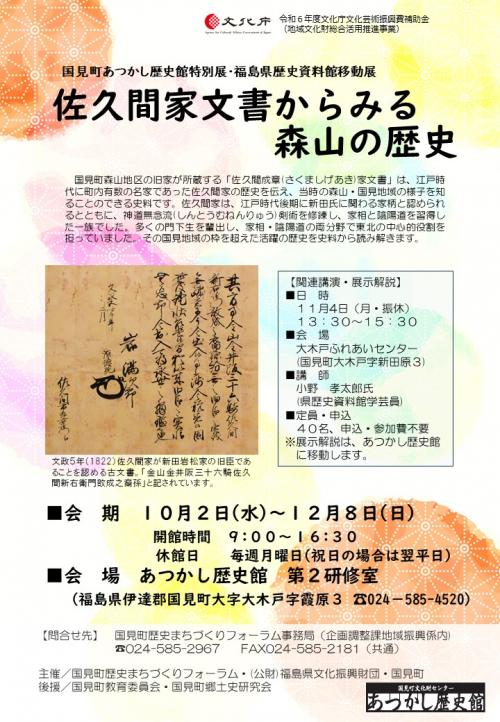 文化庁
Agency for Cultural Affairs, Government of Japan
令和6年度文化庁文化芸術振興費補助金
(地域文化財総合活用推進事業)
国見町あつかし歴史館特別展・福島県歴史資料館移動展
佐久間家文書からみる
森山の歴史
国見町森山地区の旧家が所蔵する「佐久間成章(さくましげあき)家文書」は、江戸時
代に町内有数の名家であった佐久間家の歴史を伝え、当時の森山・国見地域の様子を知
ることのできる史料です。佐久間家は、江戸時代後期に新田氏に関わる家柄と認められ
るとともに、神道無念流(しんとうむねんりゅう)剣術を修練し、家相と陰陽道を習得し
た一族でした。多くの門下生を輩出し、家相・陰陽道の両分野で東北の中心的役割を
担っていました。その国見地域の枠を超えた活躍の歴史を史料から読み解きます。
文政5年(1822)佐久間家が新田岩松家の旧臣であ
ることを認める古文書。「金山金井阪三十六騎佐久
間新右衛門致成之裔孫」と記されています。
【関連講演・展示解説】
■日 時
11月4日(月・振休)
13:30~15:30
■会 場
大木戸ふれあいセンター
(国見町大木戸字新田原3)
■講 師
小野 孝太郎氏
(県歴史資料館学芸員)
■定員・申込
40名、申込・参加費不要
※展示解説は、あつかし歴史館
に移動します。
■会 期 10月2日(水)~12月8日(日)
開館時間 9:00~16:30
休館日 毎週月曜日(祝日の場合は翌平日)
■会 場 あつかし歴史館 第2研修室
(福島県伊達郡国見町大字大木戸字霞原3 ☎024-585-4520)
【問合せ先】 国見町歴史まちづくりフォーラム事務局(企画調整課地域振興係内)
☎024-585-2967 FAX024-585-2181(共通)
主催/国見町歴史まちづくりフォーラム・(公財)福島県文化振興財団・国見町
後援/国見町教育委員会・国見町郷土史研究会
国見町文化財センター
あつかし歴史館